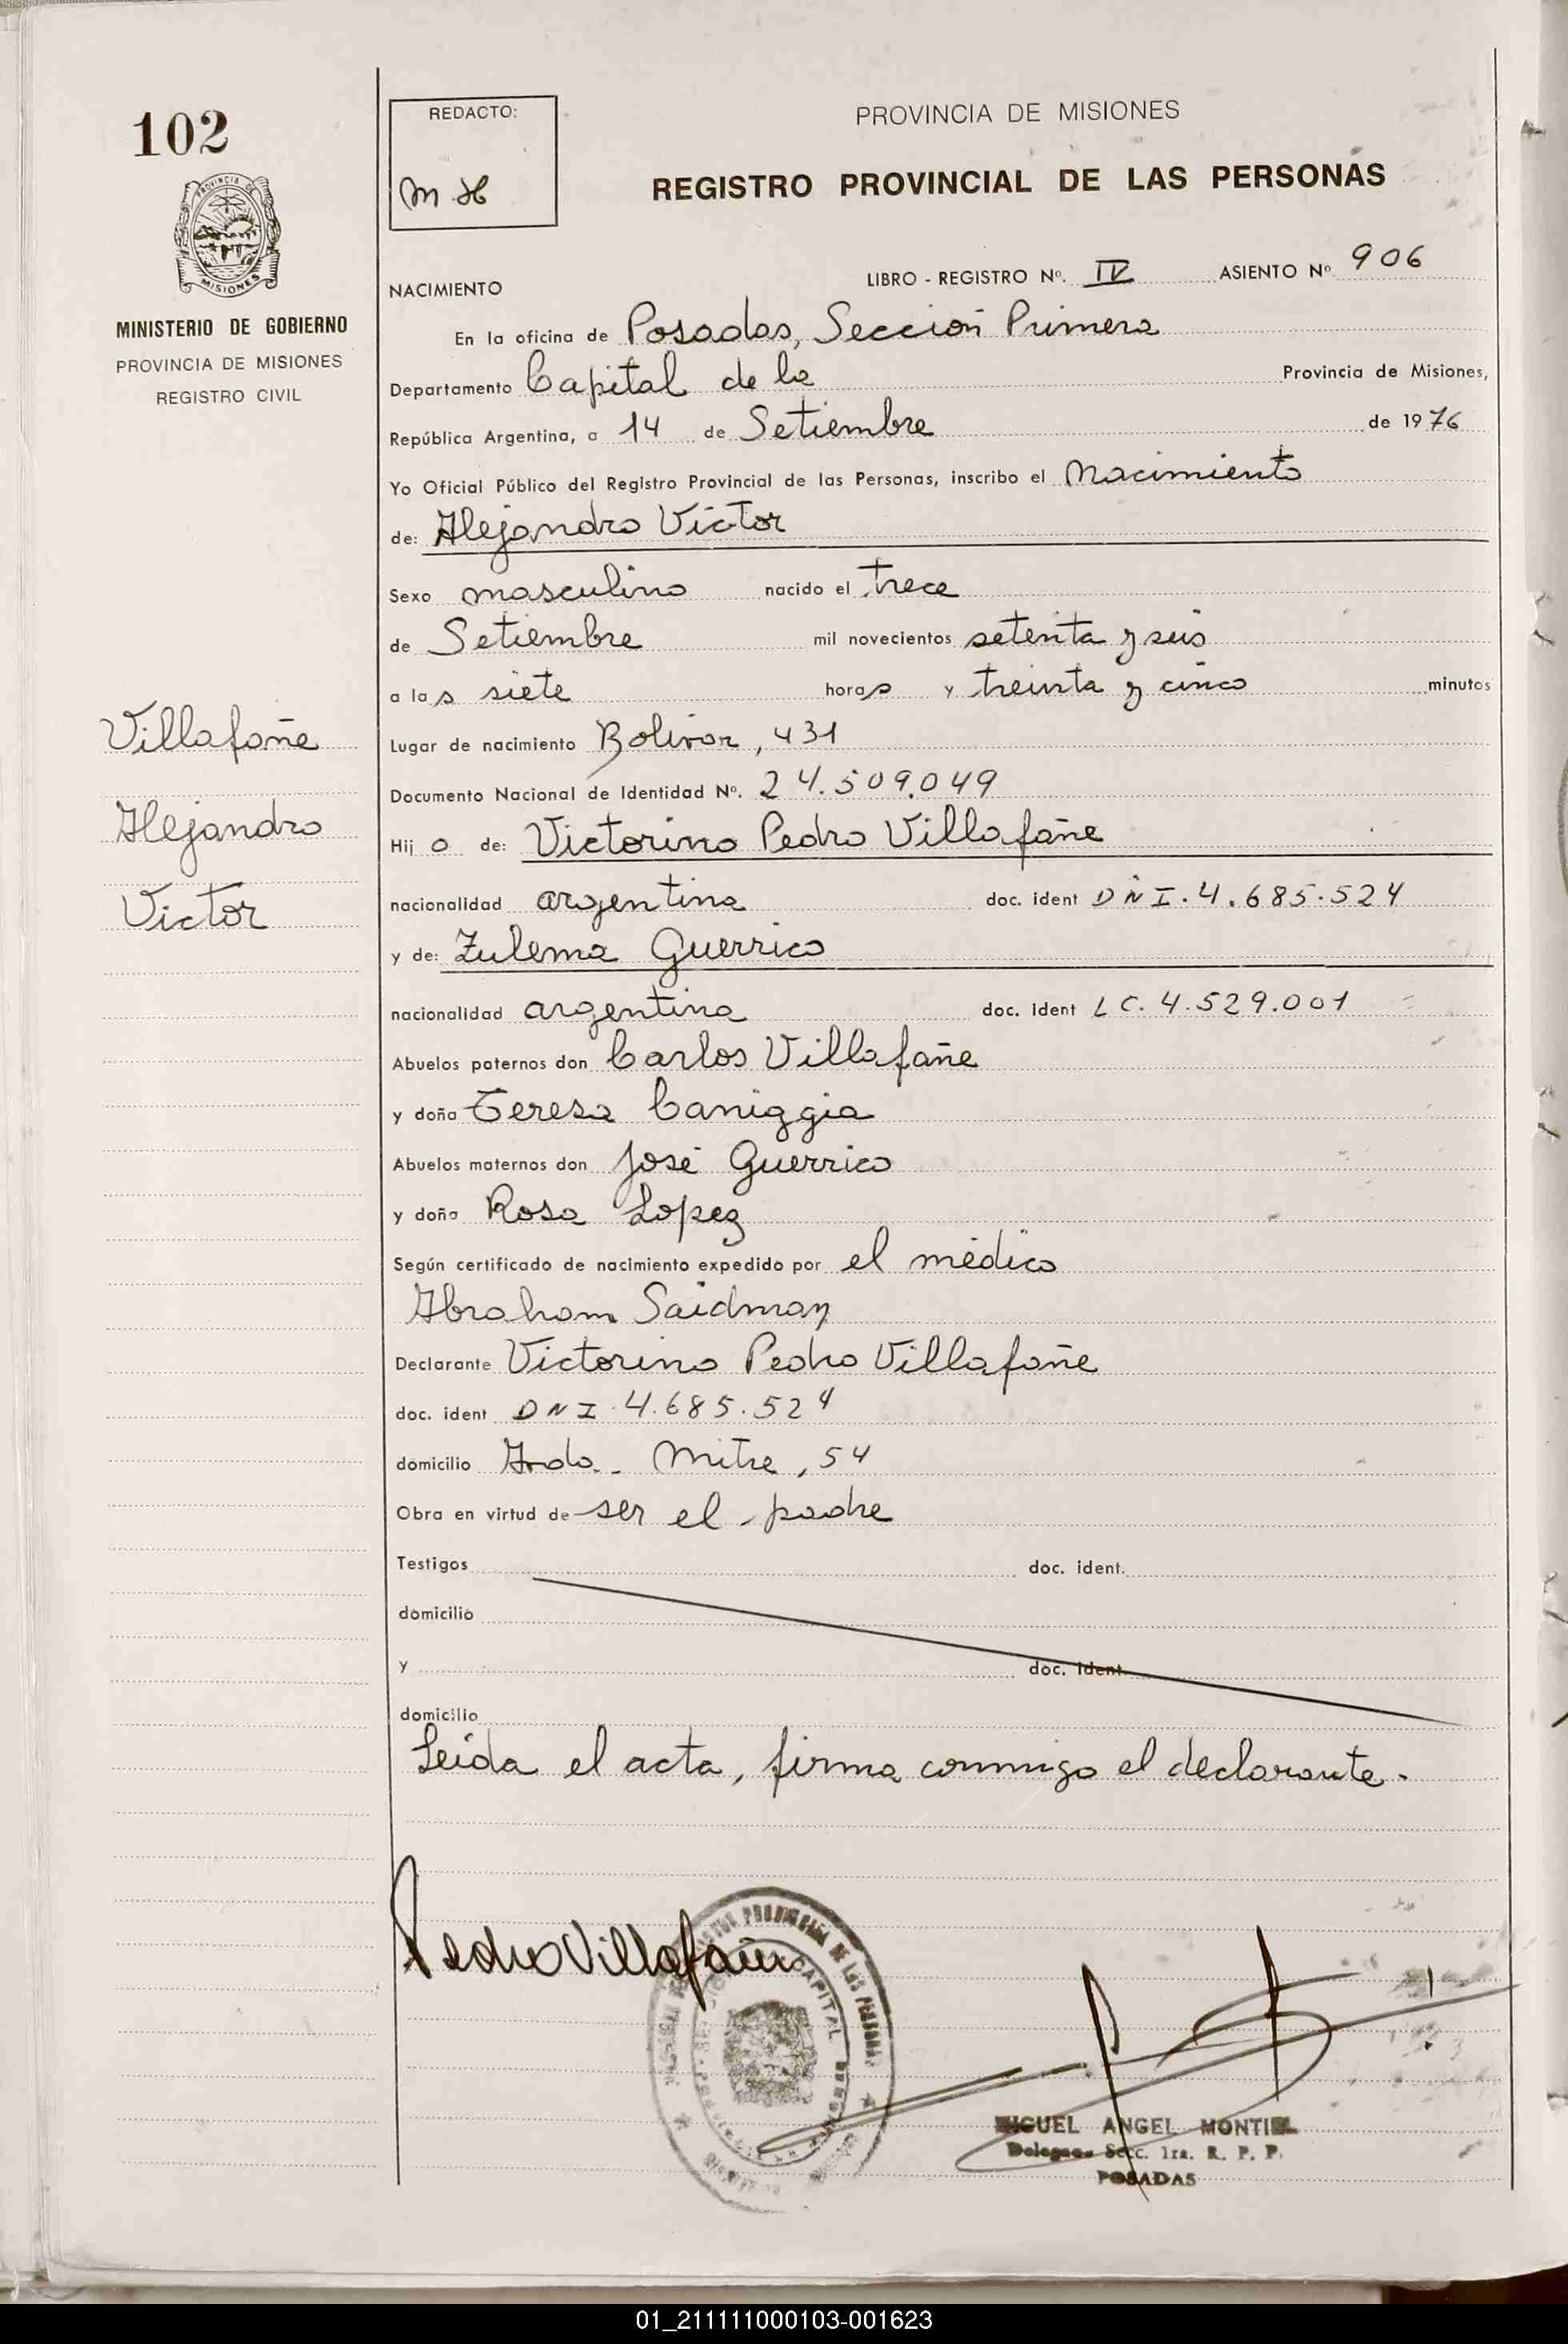 102
PROVINCIA DE
MISIONES
MINISTERIO DE GOBIERNO
PROVINCIA DE MISIONES
REGISTRO CIVIL
Villafañe
Alejandro
Victor
REDACTO:
M H
PROVINCIA DE MISIONES
REGISTRO PROVINCIAL DE LAS PERSONAS
NACIMIENTO LIBRO - REGISTRO Nº. IV ASIENTO Nº 906
En la oficina de Posadas, Sección Primera
Departamento Capital de la Provincia de Misiones,
República Argentina, a 14 de Setiembre de 1976
Yo Oficial Público del Registro Provincial de las Personas, inscribo el Nacimiento
de: Alejandro Victor
Sexo masculino nacido el trece
de Setiembre mil novecientos setenta y seis
a las siete horas y treinta y cinco minutos
Lugar de nacimiento Bolivar, 431
Documento Nacional de Identidad Nº. 24.509.049
Hijo de: Victorino Pedro Villafañe
nacionalidad argentina doc. ident DNI. 4.685.524
y de: Zulema Guerrico
nacionalidad argentina doc. ident LC. 4.529.001
Abuelos paternos don Carlos Villafañe
y doña Teresa Caniggia
Abuelos maternos don José Guerrico
y doña Rosa Lopez
Según certificado de nacimiento expedido por el médico
Abraham Saidman
Declarante Victorino Pedro Villafañe
doc. ident DNI. 4.685.524
domicilio Avda. Mitre, 54
Obra en virtud de ser el padre
Testigos doc. ident.
domicilio
y doc. ident.
domicilio
Leida el acta, firma conmigo el declarante.
Pedro Villafañe
PROVINCIAL DE LAS PERSONAS
CAPITAL
MIGUEL ANGEL MONTIEL
Delegado Secc. 1ra. R. P. P.
POSADAS
01_211111000103-001623